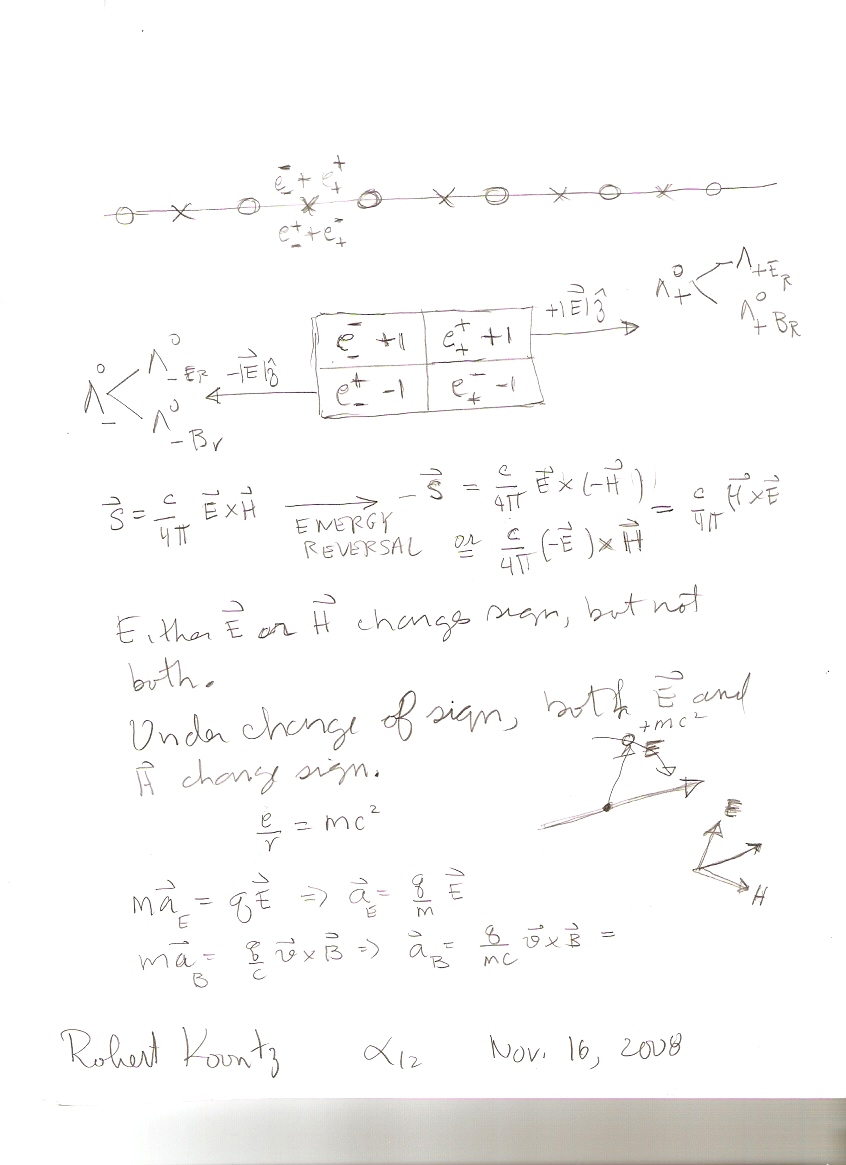 e₋⁻ + e₊⁺
e₋⁺ + e₊⁻
Λ₊⁰ Λ₊E_R
Λ₊⁰ B_R
+|E⃗|ẑ
e₋⁻ +1 e₊⁺ +1
e₋⁺ -1 e₊⁻ -1
-|E⃗|ẑ
Λ₋⁰ Λ⁰₋E_R
Λ⁰₋B_r
S⃗ = c/4π E⃗×H⃗ → -S⃗ = c/4π E⃗×(-H⃗) = c/4π H⃗×E⃗
ENERGY
REVERSAL or c/4π (-E⃗)×H⃗
Either E⃗ or H⃗ changes sign, but not
both.
Under change of sign, both E⃗ and
H⃗ change sign.
+mc²
E
e/r = mc²
E
H
ma⃗_E = qE⃗ => a⃗_E = q/m E⃗
ma⃗_B = q/c v⃗×B⃗ => a⃗_B = q/mc v⃗×B⃗ =
Robert Koontz α₁₂ Nov. 16, 2008